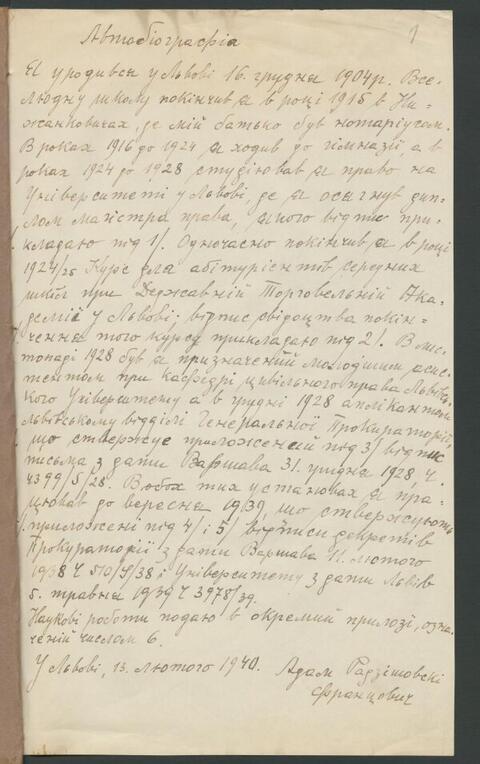 1
Автобіографія
Я уродився у Львові 16. грудня 1904 р. Все-
людну школу покінчив я в році 1915 в Ни-
жанковичах, де мій батько був нотаріусом.
В роках 1916 до 1924 я ходив до гімназії, а в
роках 1924 до 1928 студіював я право на
Університеті у Львові, де я осягнув дип-
лом магістра права, якого відпис при-
кладаю під 1/. Одночасно покінчив я в році
1924/25 Курс для абітурієнтів середних
шкіл при Державній Торговельній Ака-
демії у Львові; відпис свідоцтва покін-
чення того курсу прикладаю під 2/. В лис-
топаді 1928 був я призначений молодшим асис-
тентом при катедрі цивільного права Львівсь-
кого Університету а в грудні 1928 аплікантом
Львівському відділі Генеральної Прокураторії,
що стверджує приложений під 3/ відпис
письма з дати Варшава 31. грудня 1928, Ч.
4399/5/28. В обох тих установах я пра-
цював до вересня 1939, що стверджують
приложені під 4/ і 5/ відписи декретів
Прокураторії з дати Варшава 11. лютого
1938 Ч 510/5/38 і Університету з дати Львів
5. травня 1939 Ч 3978/39.
Наукові роботи подаю в окремій прилозі, озна-
ченій числом 6.
У Львові, 13. лютого 1940. Адам Радзішовскі
Францович